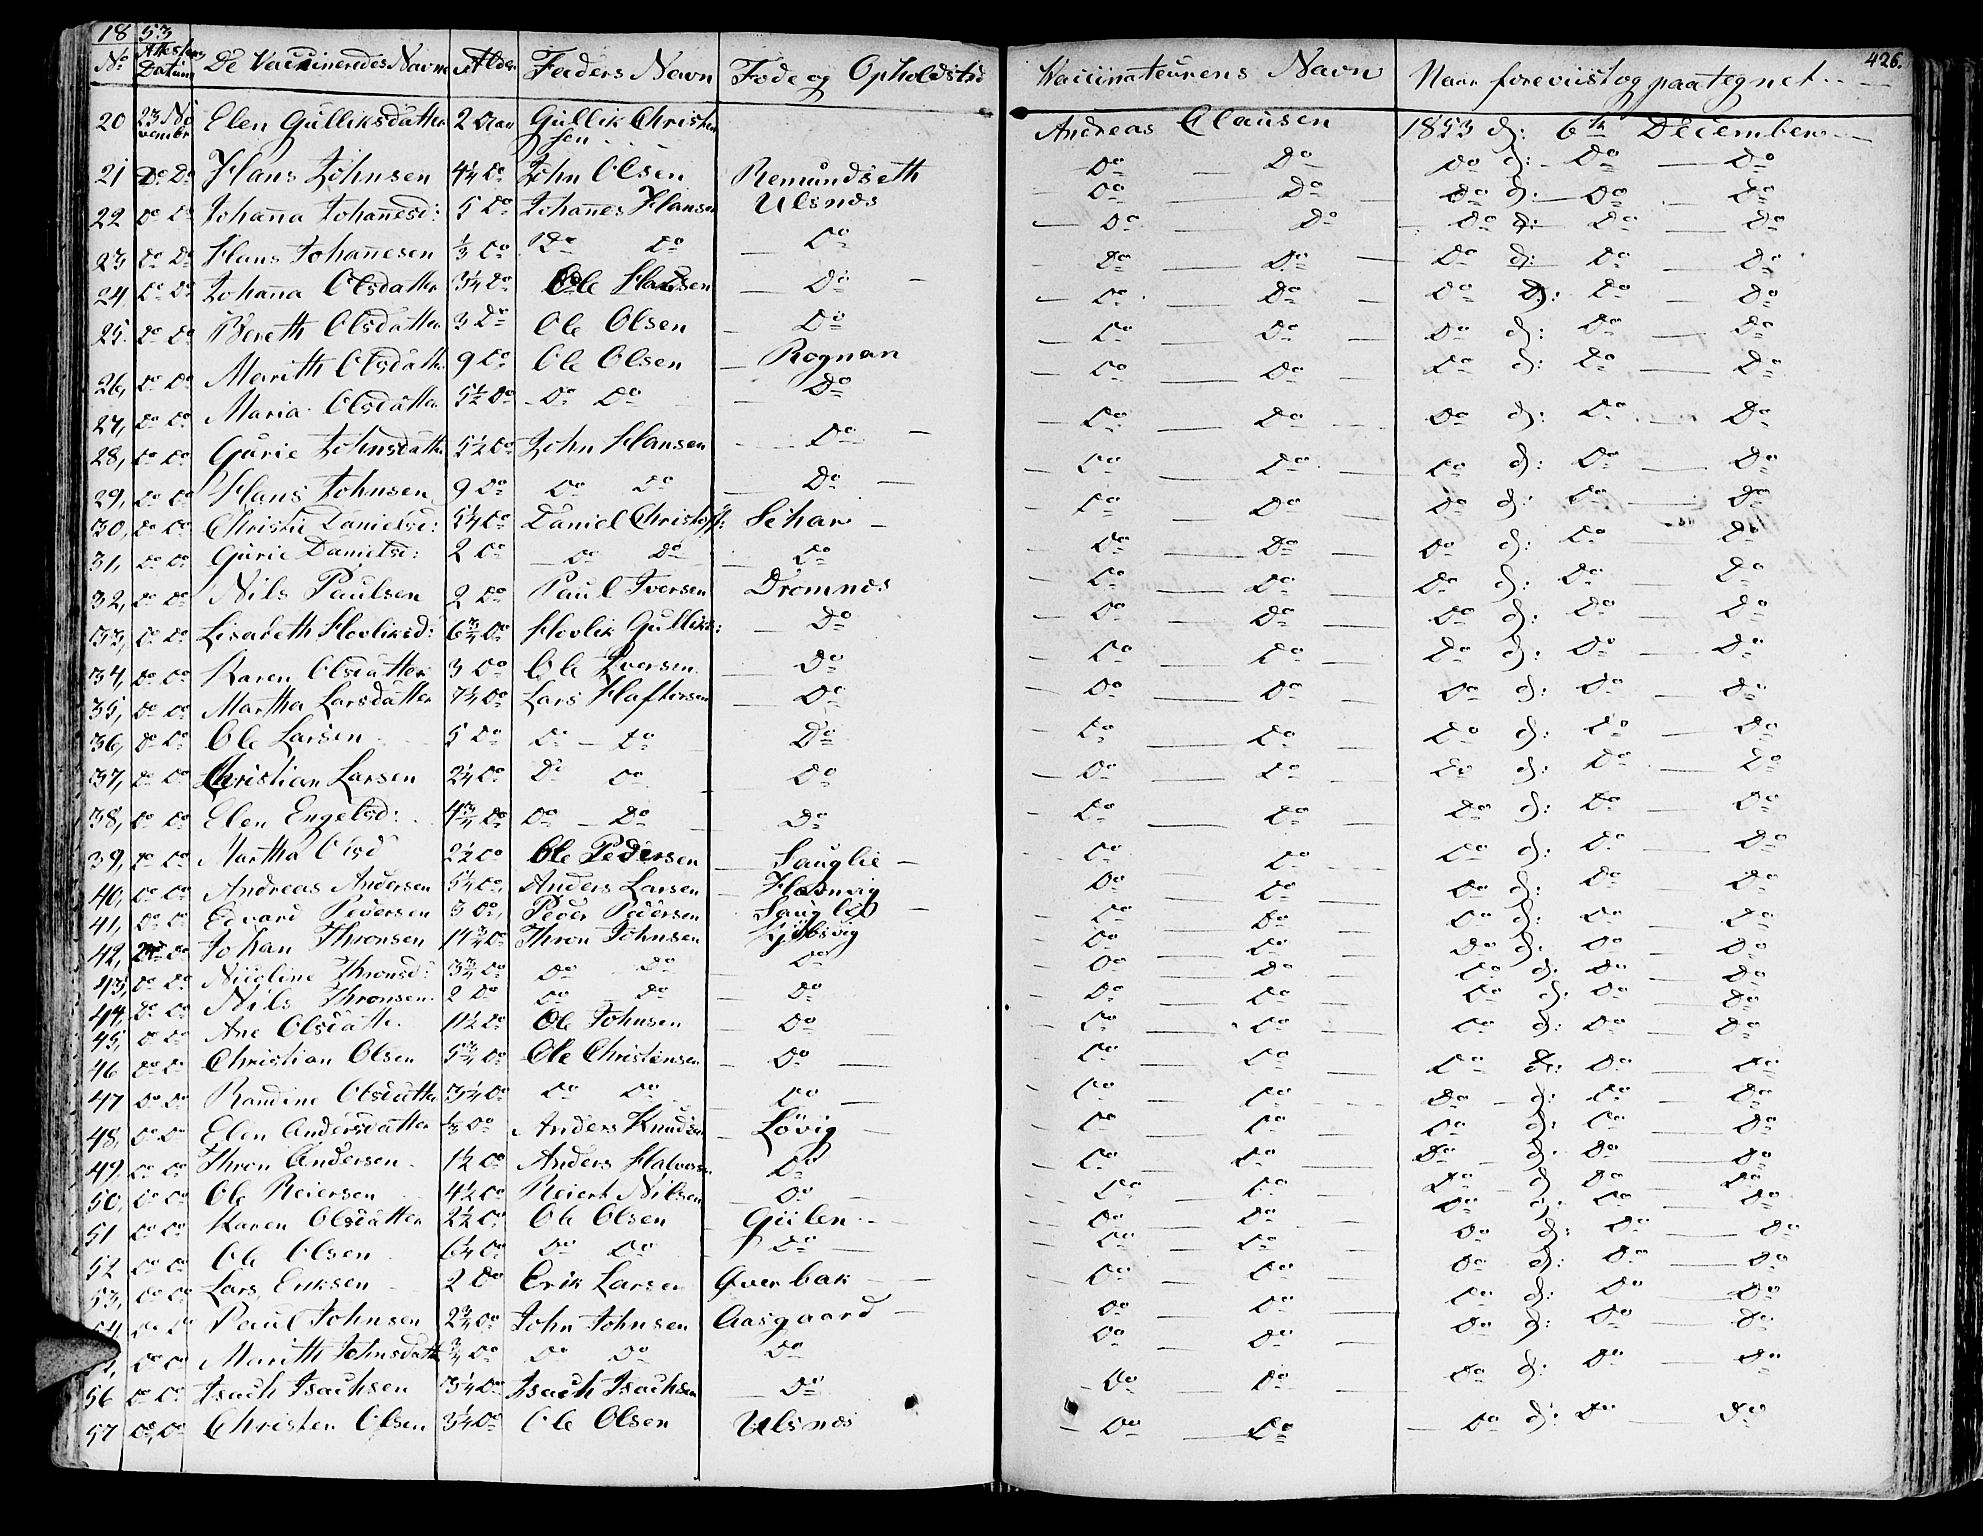 1853 426.
No Attestens Datum De Vaccineredes Navne Alder Faders Navn Føde og Opholdsted Vaccinateurens Navn Naar foreviist og paategnet
20 23 November Elen Gulliksdatter 2 Aar Gullik Christensen Andreas Clausen 1853 d: 6te December
21 Do Do Hans Johnsen 4¼ Do John Olsen Remundseth Do Do Do d: Do Do
22 Do Do Johanna Johannesd: 5 Do Johannes Hansen Ulsnæs Do Do Do d: Do Do
23 Do Do Hans Johannesen ⅓ Do Do Do Do Do Do Do d: Do Do
24 Do Do Johanna Olsdatter 3¼ Do Ole Hansen Do Do Do Do d: Do Do
25. Do Do Bereth Olsdatter 3 Do Ole Olsen Do Do Do Do d: Do Do
26, Do Do Marith Olsdatter 9 Do Ole Olsen Rognan Do Do Do d: Do Do
27, Do Do Maria Olsdatter 5½ Do Do Do Do Do Do Do d: Do Do
28, Do Do Gurie Johnsdatter 5½ Do John Hansen Do Do Do Do d: Do Do
29, Do Do Hans Johnsen 9 Do Do Do Do Do Do Do d: Do Do
30, Do Do Christie Danielsd: 5¼ Do Daniel Christoff: Schar Do Do Do d: Do Do
31, Do Do Gurie Danielsd: 2 Do Do Do Do Do Do Do d: Do Do
32, Do Do Nils Paulsen 2 Do Paul Iversen Dromnæs Do Do Do d: Do Do
33, Do Do Lisabeth Hovliksd: 6¾ Do Hovlik Gulliks: Do Do Do Do d: Do Do
34, Do Do Karen Olsdatter 3 Do Ole Iversen Do Do Do Do d: Do Do
35, Do Do Martha Larsdatter 7½ Do Lars Haftorsen Do Do Do Do d: Do Do
36, Do Do Ole Larsen 5 Do Do Do Do Do Do Do d: Do Do
37, Do Do Christian Larsen 2¼ Do Do Do Do Do Do Do d: Do Do
38, Do Do Elen Engelsd: 4¾ Do Do Do Do Do Do Do d: Do Do
39, Do Do Martha Olsd 2½ Do Ole Pedersen Sauglie Do Do Do d: Do Do
40, Do Do Andreas Andersen 5¼ Do Anders Larsen Do Do Do d: Do Do
41, Do Do Edvard Pedersen 3 Do Peder Pedersen Sauglie Do Do Do d: Do Do
42, Do Do Johan Thronsen 14¾ Do Thron Johnsen Do Do Do d: Do Do
43, Do Do Nicoline Thronsd: 3¾ Do Do Do Do Do Do Do d: Do Do
44, Do Do Nils Thronsen 2 Do Do Do Do Do Do Do d: Do Do
45, Do Do Ane Olsdatte. 11½ Do Ole Johnsen Do Do Do Do d: Do Do
46 Do Do Christian Olsen 5¾ Do Ole Christensen Do Do Do Do d: Do Do
47 Do Do Randine Olsdatter 3¼ Do Do Do Do Do Do Do d: Do Do
48, Do Do Elen Andersdatter ⅓ Do Anders Knudsen Løvig Do Do Do d: Do Do
49. Do Do Thron Andersen 1½ Do Anders Halvors: Do Do Do Do d: Do Do
50, Do Do Ole Reiersen 4½ Do Reiert Nilsen Do Do Do Do d: Do Do
51 Do Do Karen Olsdatter 2½ Do Ole Olsen Gülen Do Do Do d: Do Do
52 Do Do Ole Olsen 6¼ Do Do Do Do Do Do Do d: Do Do
53, Do Do Lars Eriksen 2 Do Erik Larsen Øverbak Do Do Do d: Do Do
Do Do Paul Johnsen 2¾ Do John Johnsen Aasgaard Do Do Do d: Do Do
Do Do Marith Johnsdatt ¾ Do Do Do Do Do Do Do d: Do Do
56 Do Do Isach Isachsen 3¼ Do Isach Isachsen Do Do Do Do d: Do Do
57 Do Do Christen Olsen 3¼ Do Ole Olsen Ulsnæs Do Do Do d: Do Do